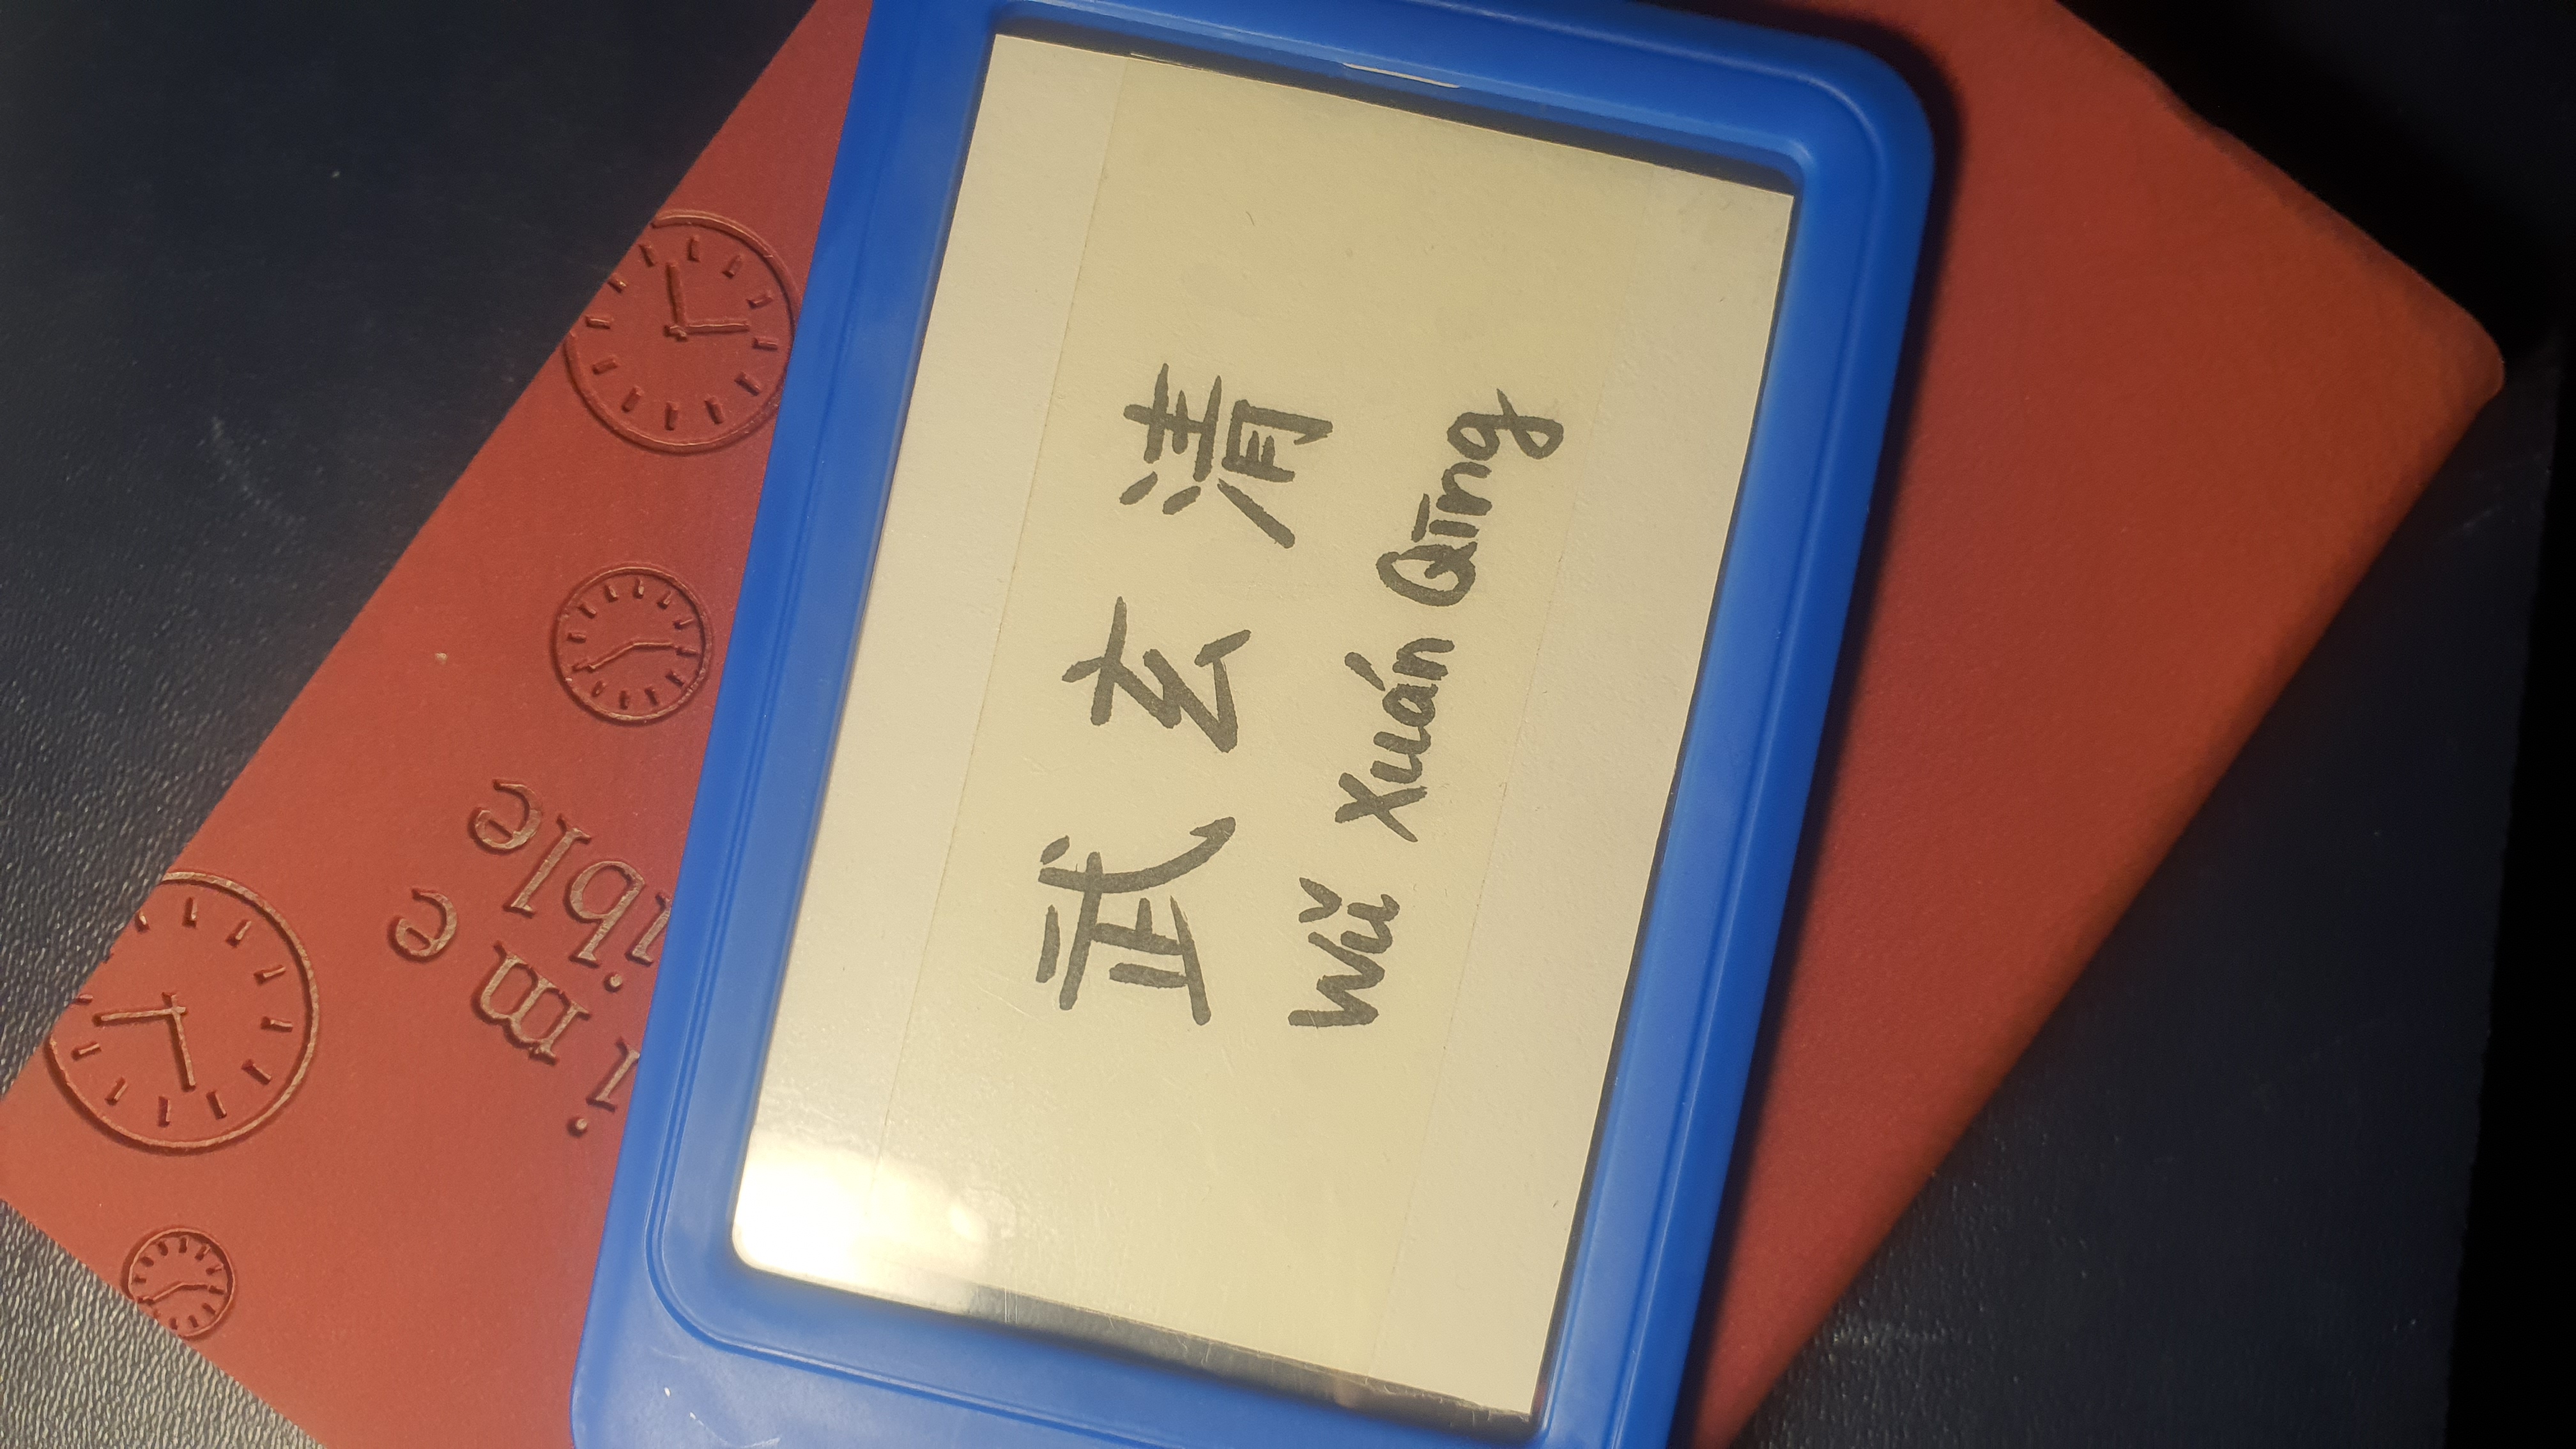 ime
ible
武玄清
Wǔ Xuán Qīng